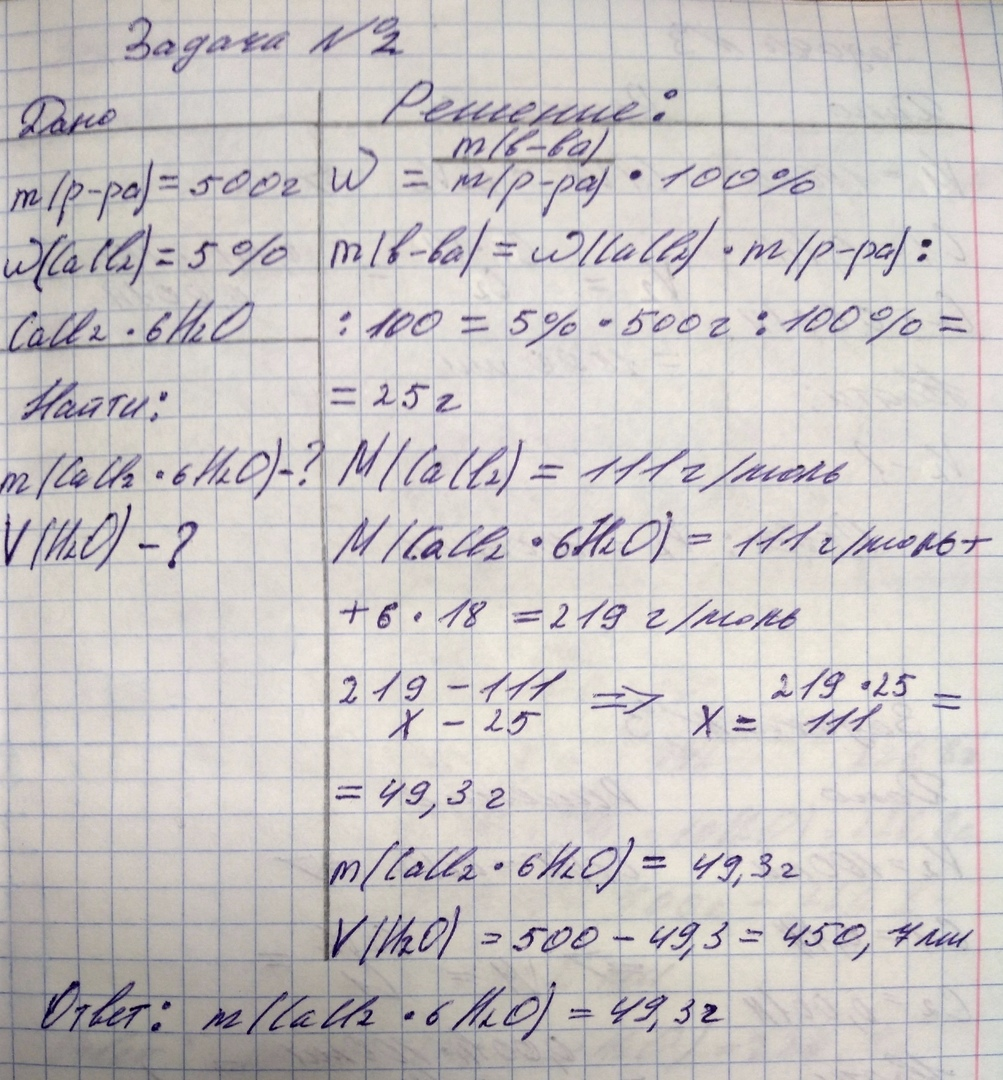 Задача №2
Дано
Решение:
m(р-ра) = 500г
w(CaCl2) = 5%
CaCl2 · 6H2O
Найти:
m(CaCl2 · 6H2O) - ?
V(H2O) - ?
w = m(в-ва) / m(р-ра) · 100%
m(в-ва) = w(CaCl2) · m(р-ра) :
: 100 = 5% · 500г : 100% =
= 25г
M(CaCl2) = 111 г/моль
M(CaCl2 · 6H2O) = 111 г/моль +
+ 6 · 18 = 219 г/моль
219 - 111 => x = 219 · 25 / 111 =
x - 25
= 49,3 г
m(CaCl2 · 6H2O) = 49,3г
V(H2O) = 500 - 49,3 = 450,7 мл
Ответ: m(CaCl2 · 6H2O) = 49,3г